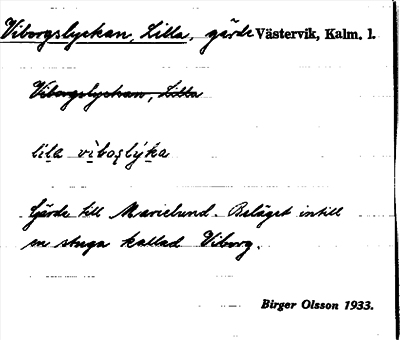 Viborgslyckan, Lilla, gärde Västervik, Kalm. l.
Viborgslyckan, Lilla
lila viboșlýka
Gärde till Marielund. Beläget intill
en stuga kallad Viborg.
Birger Olsson 1933.